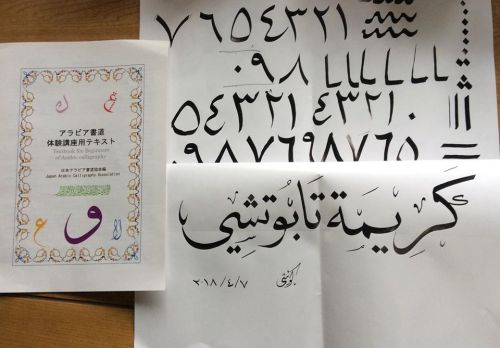 アラビア書道
体験講座用テキスト
Textbook for Beginners
of Arabic calligraphy
日本アラビア書道協会編
Japan Arabic Calligraphy Association
و
١٢٣٤٥٦٧
٨٩٠
٠١٢٣٤ ١٢٣٤٥
٥٦٧٨٩٦٧٨٩
كَرِيمَة تَابُوتشِي
٢٠١٨/٤/٧